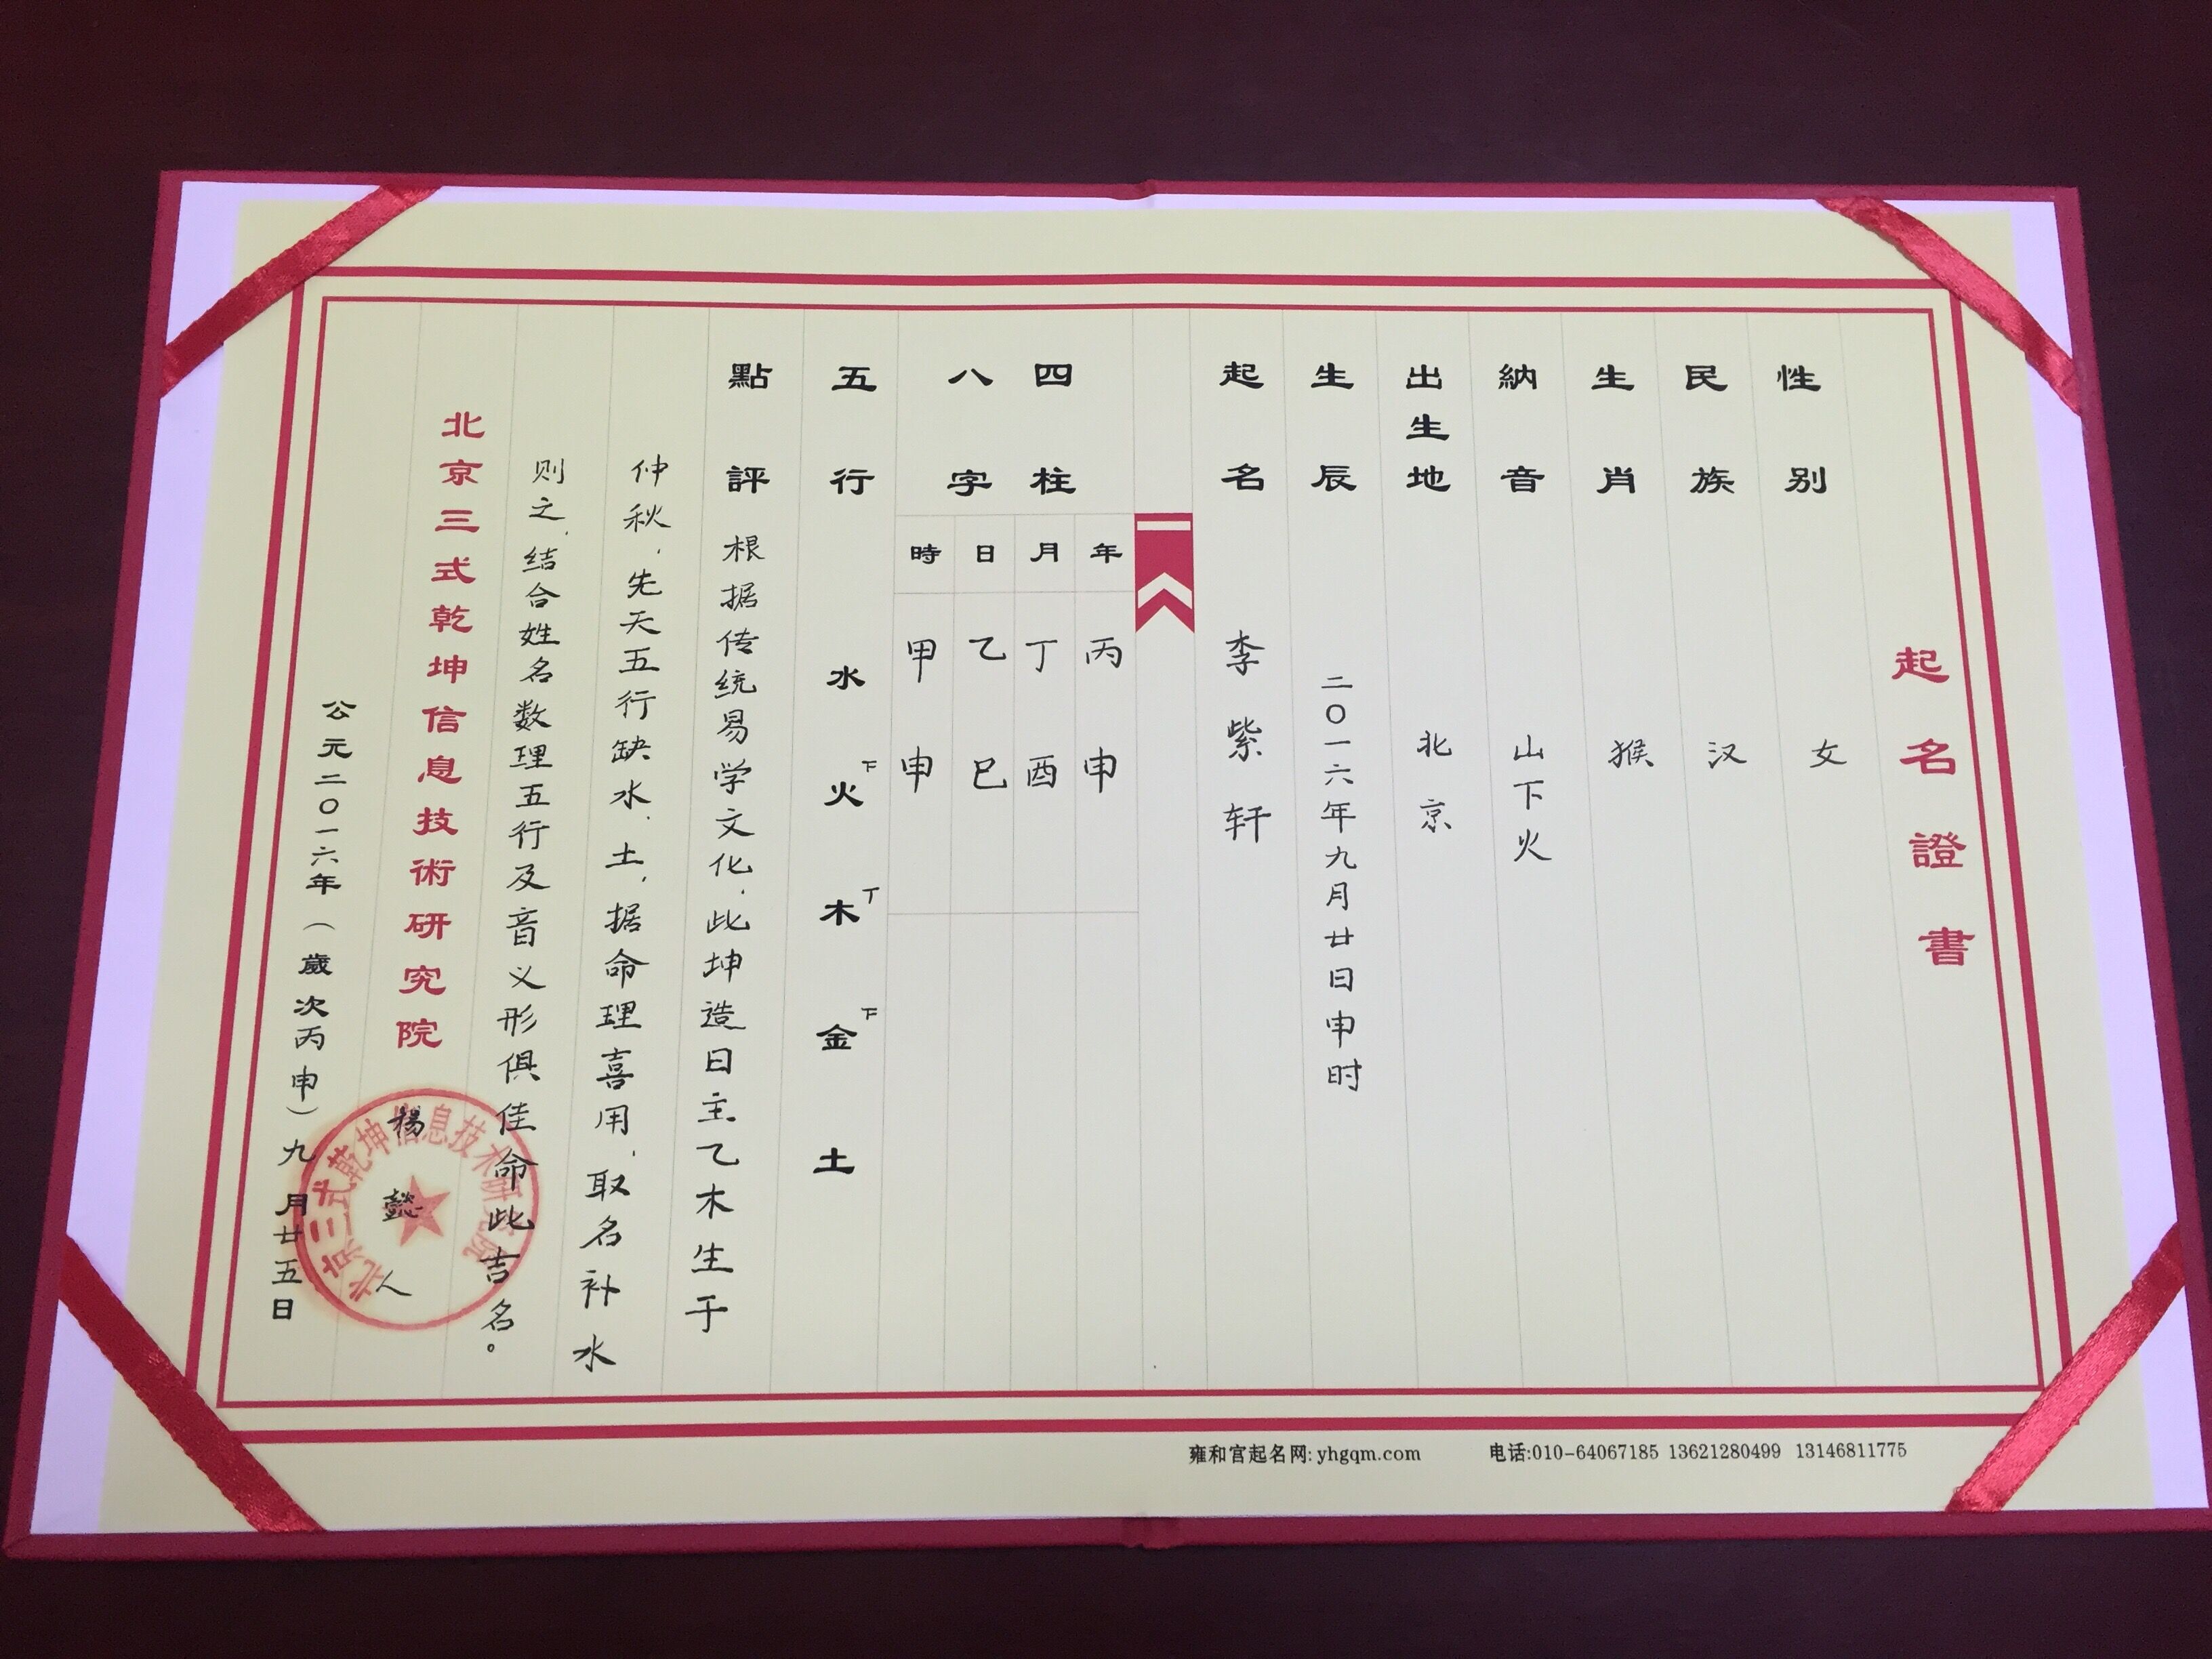 起名證書
性别 女
民族 汉
生肖 猴
納音 山下火
出生地 北京
生辰 二〇一六年九月廿日申时
起名 李紫轩
四柱
八字
年 丙申
月 丁酉
日 乙巳
時 甲申
五行 水 火下 木丁 金下 土
點評 根据传统易学文化,此坤造日主乙木生于
仲秋,先天五行缺水、土,据命理喜用,取名补水
则之,结合姓名数理五行及音义形俱佳命此吉名。
北京三式乾坤信息技術研究院
杨懿人
公元二〇一六年(歲次丙申)九月廿五日
北京三式乾坤信息技术研究院
雍和宫起名网: yhgqm.com 电话:010-64067185 13621280499 13146811775